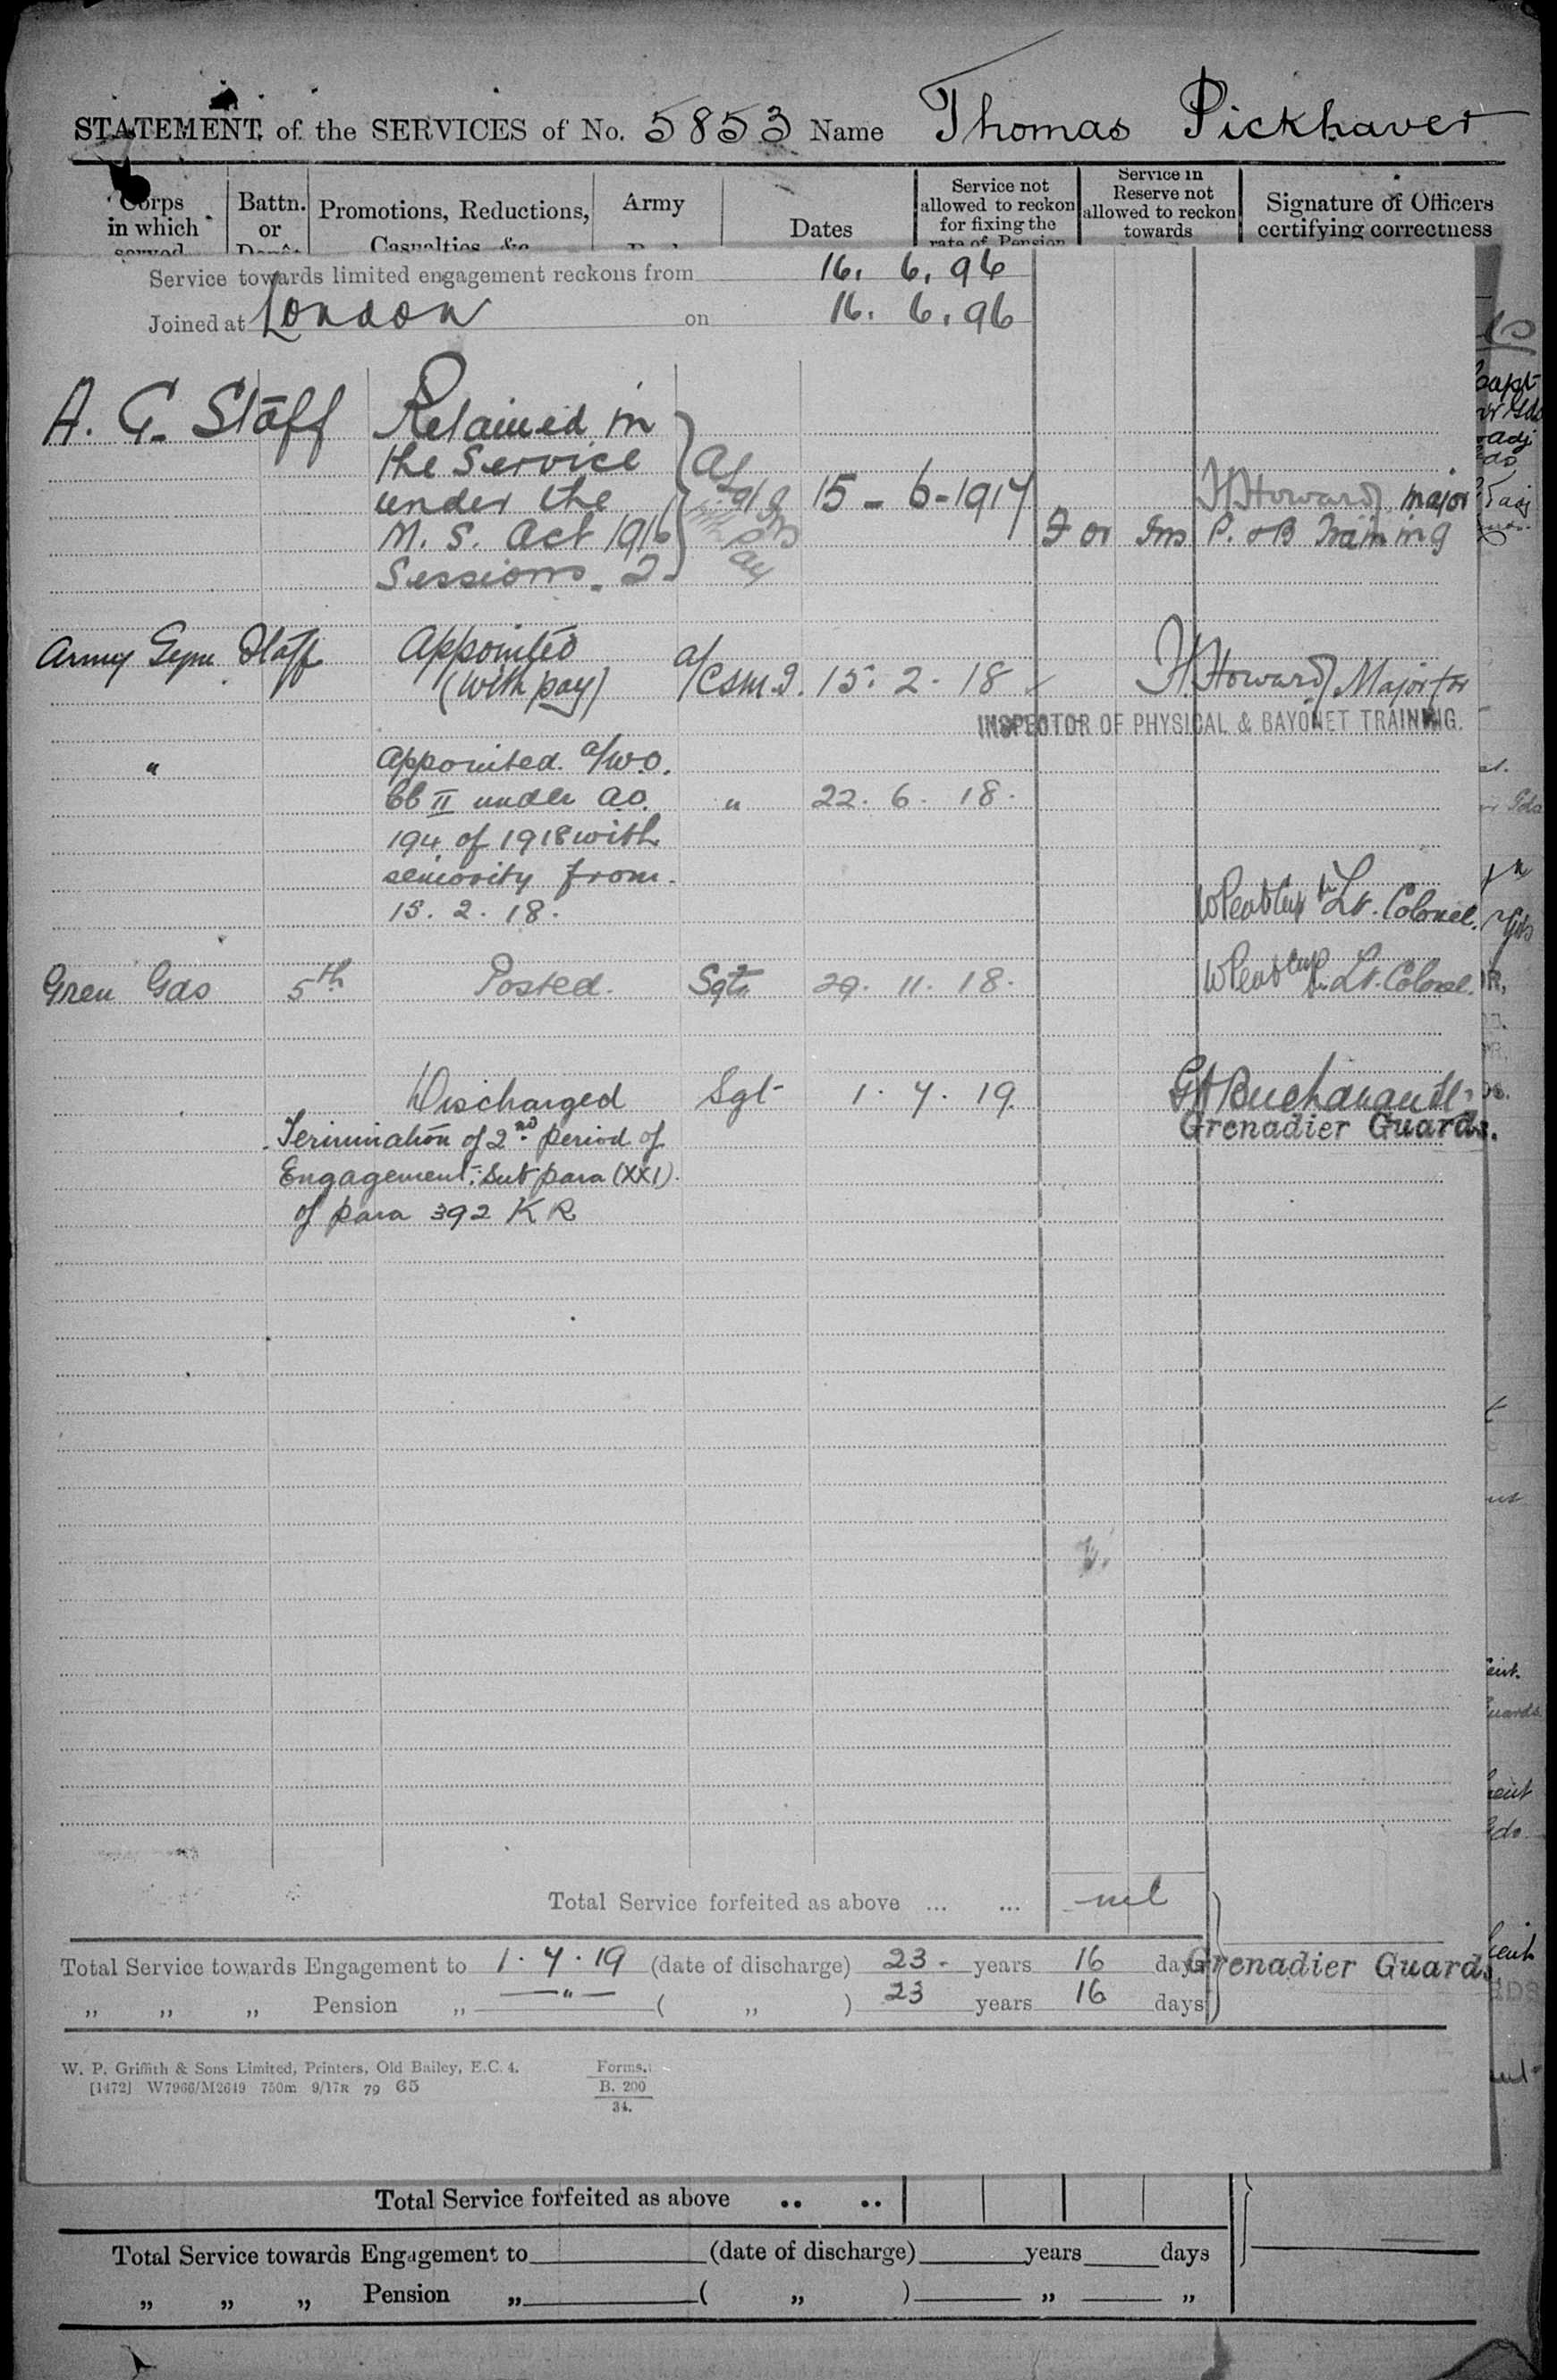 STATEMENT of the SERVICES of No. 5853 Name Thomas Pickhaver
Corps in which served
Battn. or Depôt
Promotions, Reductions, Casualties, &c
Army
Dates
Service not allowed to reckon for fixing the rate of Pension
Service in Reserve not allowed to reckon towards
Signature of Officers certifying correctness
Service towards limited engagement reckons from 16. 6. 96
Joined at London on 16. 6. 96
A. G. Staff Retained in
the Service
under the 15 - 6 - 1917 Howard, major
M. S. Act 1916 For Ins P. & B Training
Sessions. 2.
Army Gym Staff Appointed
(with pay) a/CSM.I. 15. 2. 18 H. Howard Major for
INSPECTOR OF PHYSICAL & BAYONET TRAINING.
" Appointed a/W.O.
Cl II under A.O. " 22. 6. 18.
194 of 1918 with
seniority from
15. 2. 18. Lt. Colonel.
Gren Gds 5th Posted. Sgt 29. 11. 18. Lt. Colonel.
Discharged Sgt 1. 7. 19. Buchanan
Termination of 2nd period of Grenadier Guards.
Engagement: Sub para (XXI).
of para 392 K R
Total Service forfeited as above ... ... nil
Total Service towards Engagement to 1. 7. 19 (date of discharge) 23 - years 16 days Grenadier Guards.
„ „ „ Pension „ — " — ( „ ) 23 years 16 days
W. P. Griffith & Sons Limited, Printers, Old Bailey, E.C. 4.
[1472] W7966/M2649 750m 9/17R 79 65
Forms.
B. 200
34.
Total Service forfeited as above .. ..
Total Service towards Engagement to (date of discharge) years days
„ „ „ Pension „ ( „ ) „ „